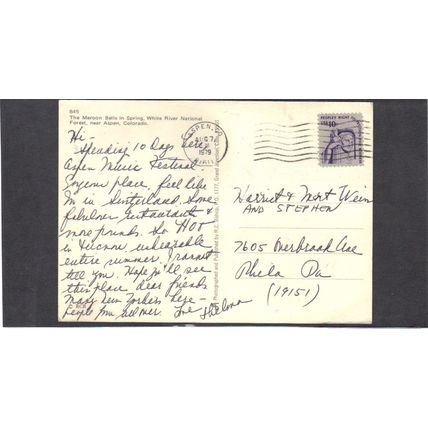 845
The Maroon Bells in Spring, White River National
Forest, near Aspen, Colorado.
Hi -
Spending 10 Days here,
Aspen Music Festival
place, feel like
I'm in Switzerland. Some
fabulous restaurants &
more friends. So HOT
in unbearable
entire summer. I cannot
tell you. Hope yo'll see
this place dear friends
Many New Yorkers here -
people you
Love Thelma
ASPEN, CO
AUG 7
1979
Photographed and Published by
Harriet & Mort Wein
AND STEPHEN
7605 Overbrook Ave
Phila Pa
(19151)